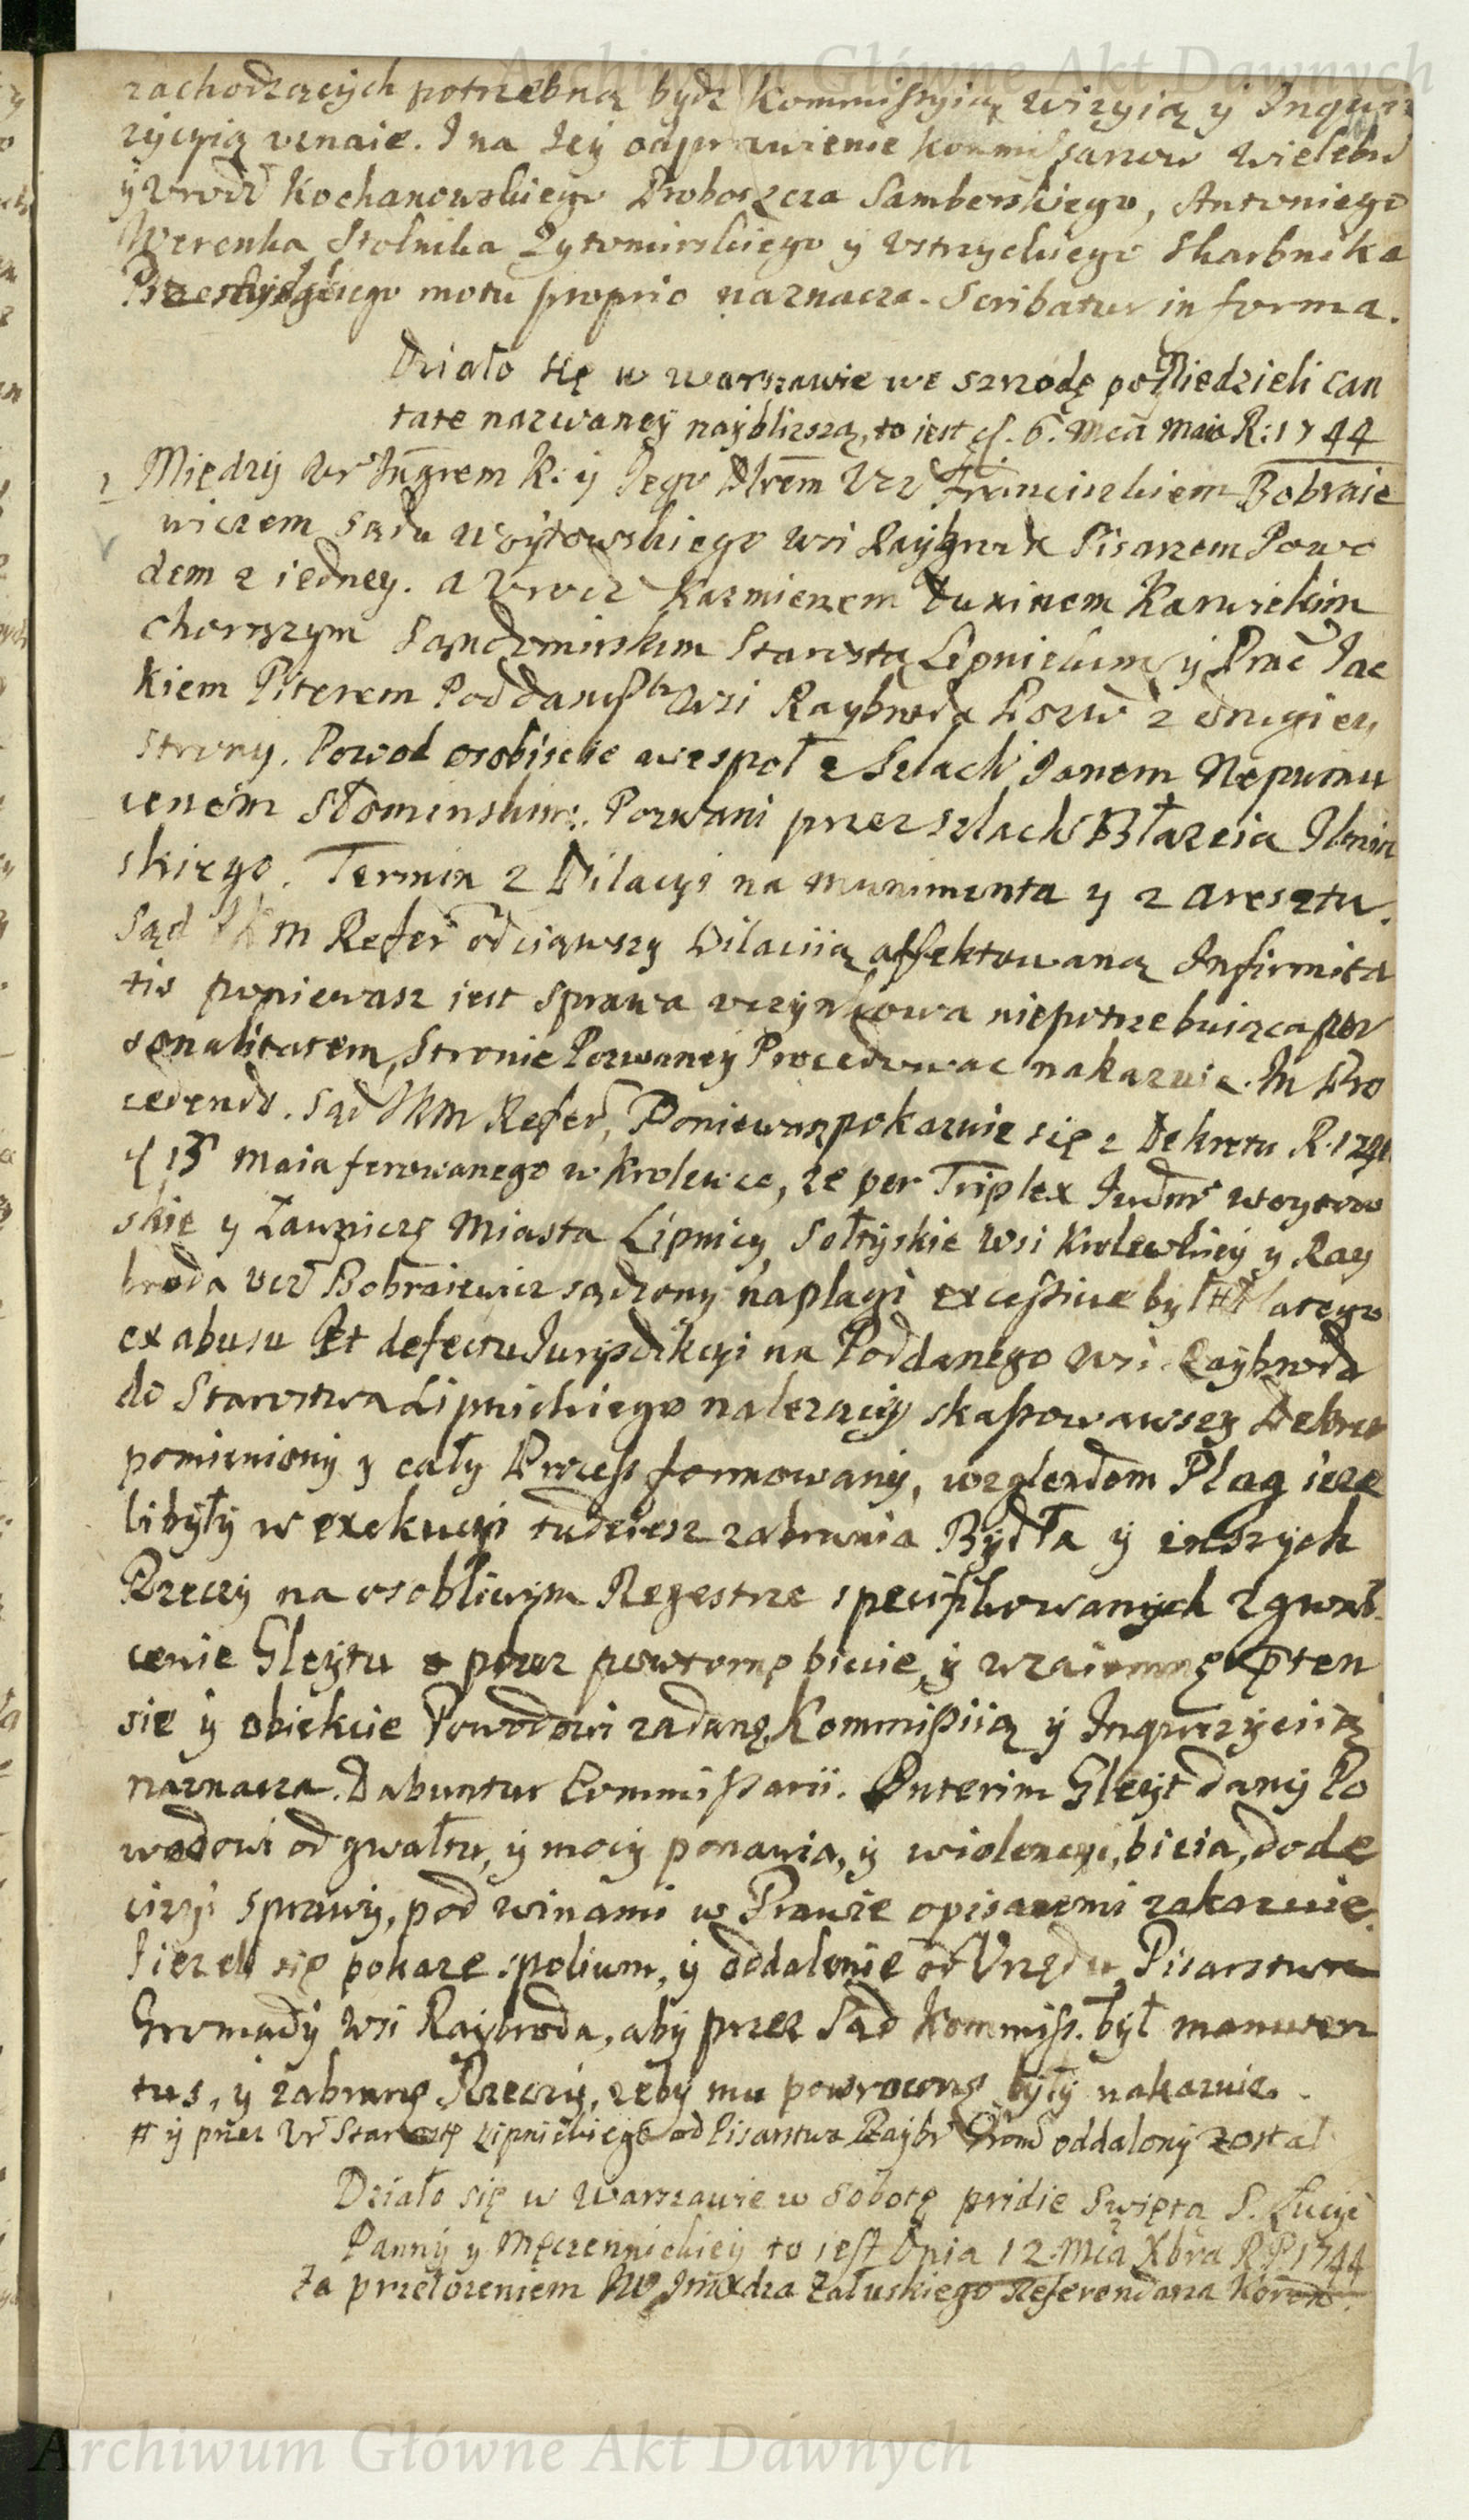 Archiwum Główne Akt Dawnych
zachodzących potrzebną bydz Kommissyią wizyią ÿ Inqwi
zÿcyią uznaie. I na Jeÿ odprawienie Kommissarzow Wielebn
ÿ Vrodz Kochanowskiego Proboszcza Samborskiego, Antoniego
Werenka Stolnika Zytomirskiego ÿ Vstrzyckiego Skarbnika
motu proprio naznacza. Scribatur in forma.
Działo się w Warszawie we szrzodę po Niedzieli Can
tate nazwaneÿ naÿblizszą, to iest d. 6. Mca Maia R: 1744
Międzÿ Vr Instygrem K: ÿ Jego Dlrem Vcz Franciszkiem Bobraie
wiczem Sądu Woÿtowskiego wsi Raÿbroda Pisarzem Powo
dem z iedney. a Vrodz Kazmierzem Karwickim
chorązym Sandomirskim Starostą Lipnickim ÿ Prac Jac
kiem Piterem Poddanym wsi Raybroda Pozw z drugiey
strony. Powod osobiscie wespoł z Szlach Janem Nepomu
cenem Słominskim. Pozwani przez Szlach Błazeia
skiego. Termin z Dilacyi na munimenta y z aresztu.
Sąd JKM Refer odciąwszy Dilaciią affektowaną Infirmita
tis poniewasz iest sprawa uczynkowa niepotrzebuiąca per
sonalitatem, Stronie Pozwaney Procedowac nakazuie. In Pro
cedendo. Sąd JKM Refer, Poniewasz pokazuie się z Dekretu R.
d 13 Maia ferowanego w Krolewce, ze per Triplex Judm Woytow
skie y Ławnicze Miasta Lipnicy, Sołtÿskie Wsi Krolewskieÿ y Ray
broda ucz Bobraiewicz sądzony na plagi excessive był # a tego
ex abusu et defectu Jurysdikcyi na Poddanego wsi Raÿbroda
do Starostwa Lipnickiego nalezącÿ skassowawszy Dekret
pomieniony y cały Process formowanÿ, względem Plag ieze
li bÿłÿ w exekucyi tudziesz zabrania Bÿdła ÿ inszÿch
Rzeczÿ na osobliwÿm Regestrze specifikowanÿch zgwał
cenie Gleÿtu przez powtorne bicie, ÿ wzaiemne preten
sie ÿ obiekcie Powodowi zadane, Kommissiią ÿ Inqwizÿciią
naznacza. Dabuntur Commissarii. Interim Gleÿt danÿ Po
wodowi od gwałtu, ÿ mocÿ ponawia, ÿ wiolencyi, bicia, do de
cizyi sprawÿ, pod winami w Prawie opisanemi zakazuie.
Jiezeli się pokaze spolium, ÿ oddalenie od Vrzędu Pisarstwa
Gromadÿ wsi Raÿbroda, abÿ przez Sąd Kommiss. był manuten
tus, ÿ zabrane Rzeczÿ, zebÿ mu powrocone bÿłÿ nakazuie.
# ÿ przez Vr Starostę Lipnickiego od Pisarstwa Raÿbr Grom oddalonÿ został
Działo się w Warszawie w Sobotę pridie Swięta S. Łucyi
Pannÿ y Męczenniczkieÿ to iest Dnia 12. Mca Xbra R. P. 1744
Za przełozeniem JW Jmxdza Załuskiego Referendarza Koron.
Archiwum Główne Akt Dawnych